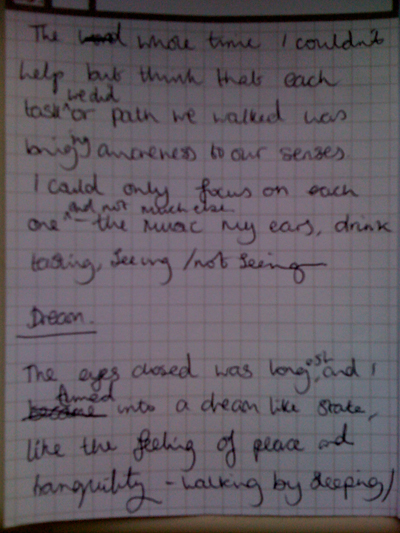 The whole time I couldn't
help but think that each
task we did or path we walked was
bringing awareness to our senses.
I could only focus on each
one and not much else - the music my ears, drink
tasting, seeing / not seeing
Dream.
The eyes closed was longest, and I
turned into a dream like state,
like the feeling of peace and
tranquility - walking by sleeping /